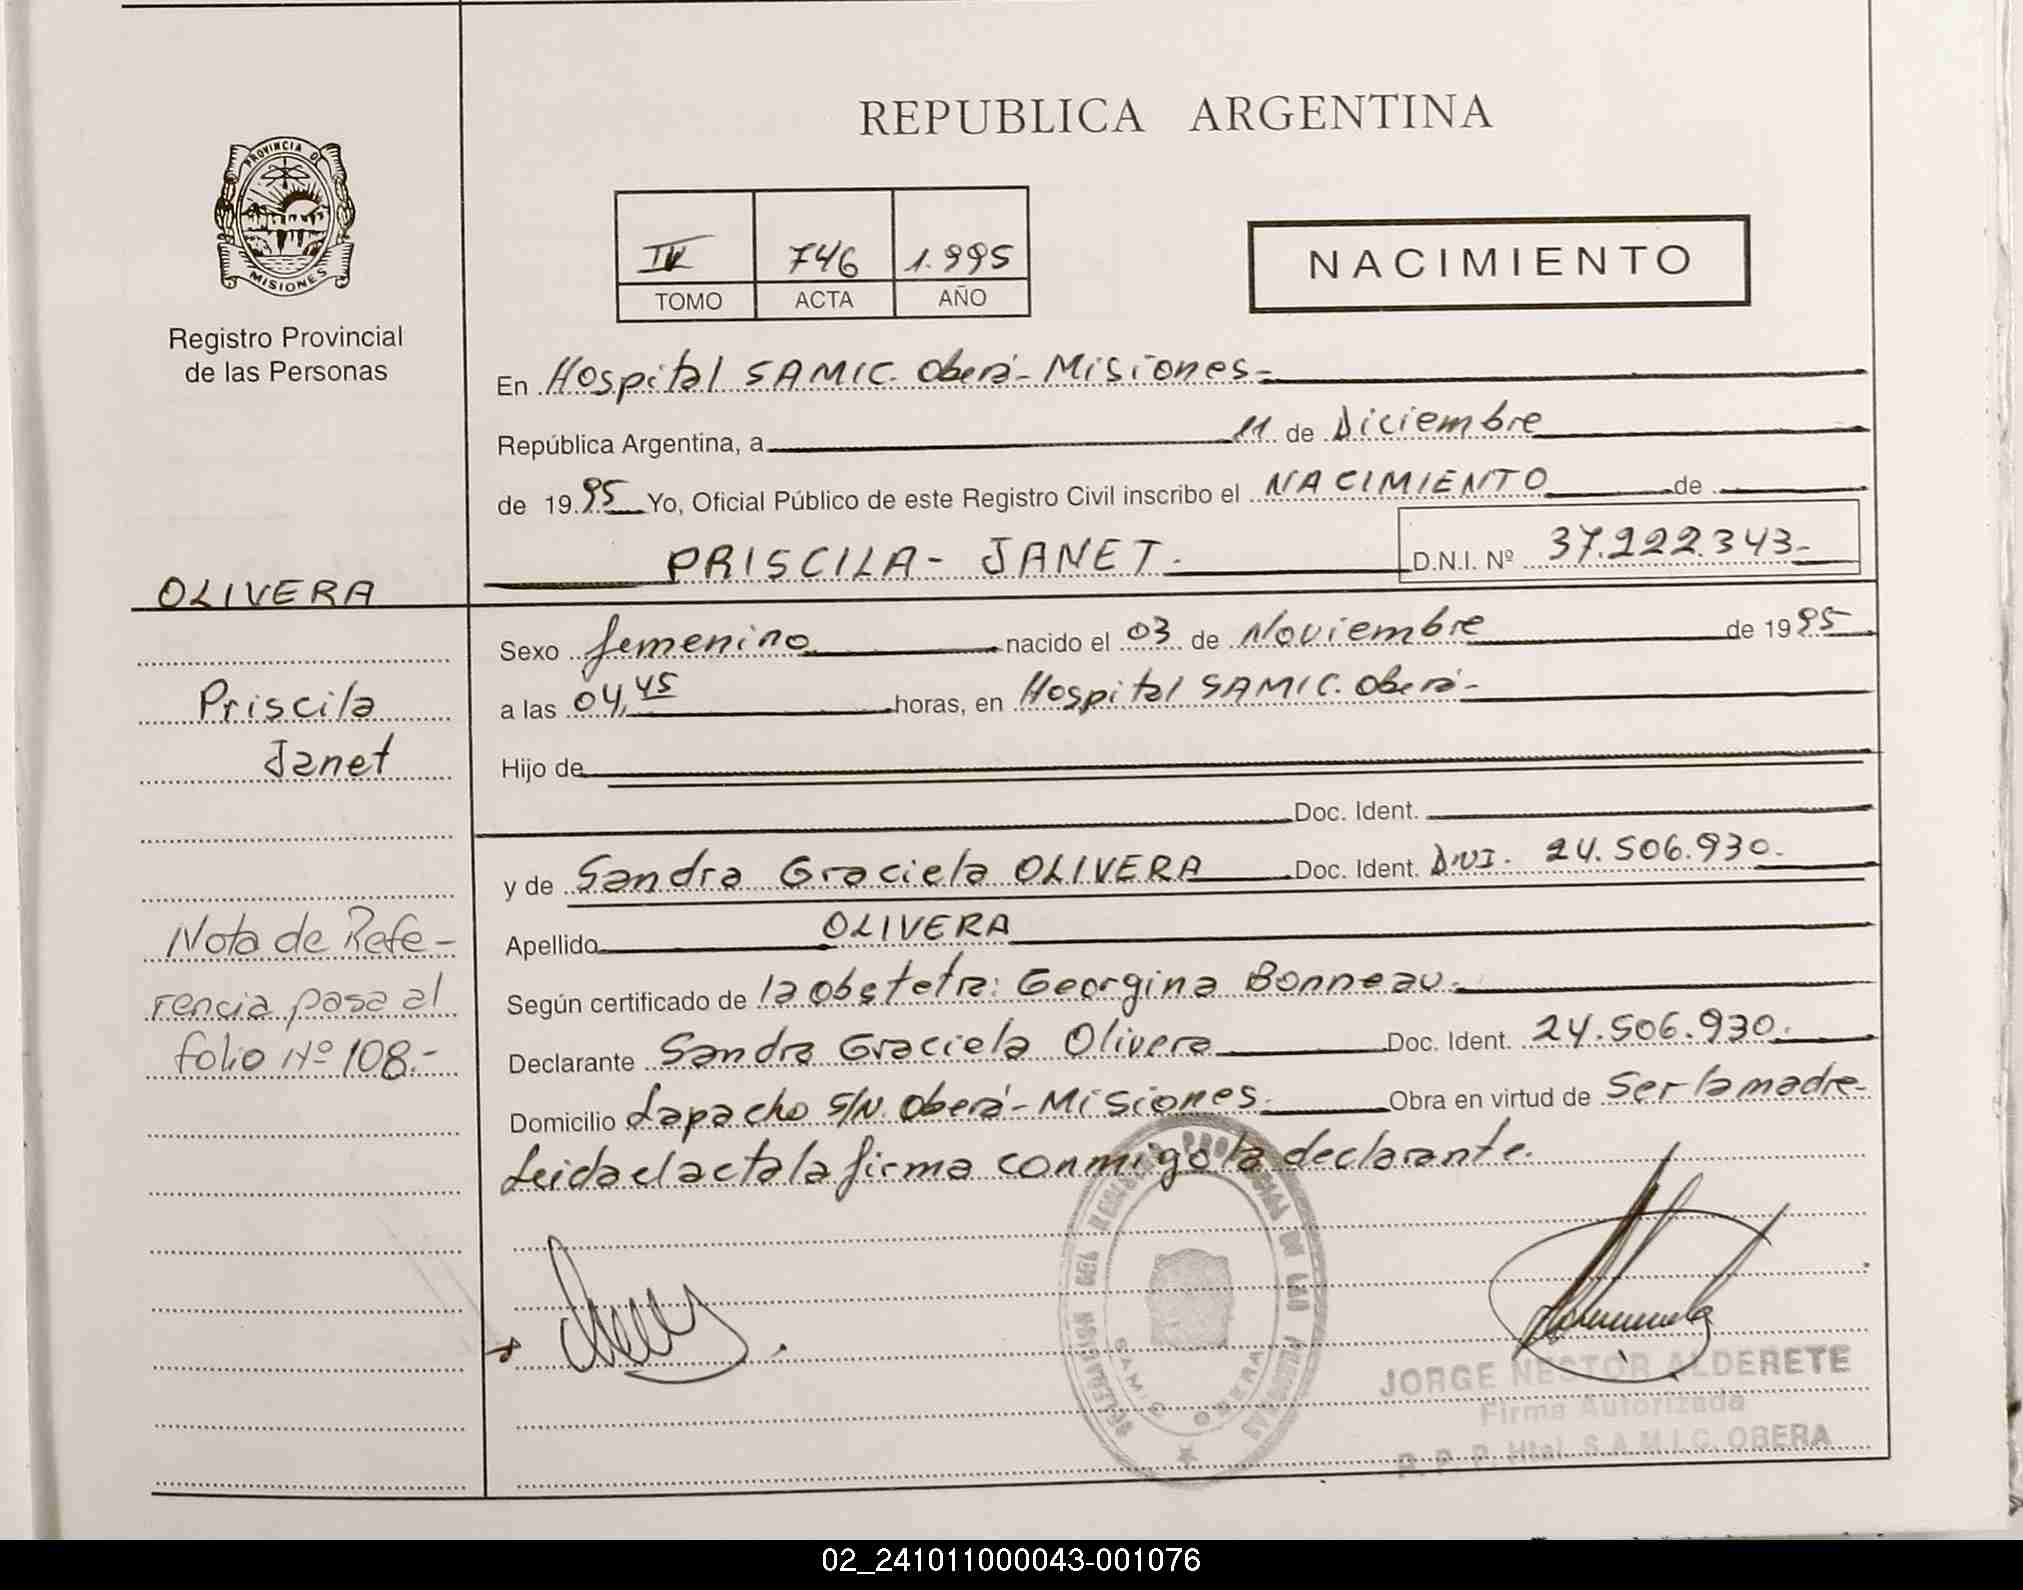 REPUBLICA ARGENTINA
PROVINCIA DE
MISIONES
Registro Provincial
de las Personas
IV 746 1.995
TOMO ACTA AÑO
NACIMIENTO
En Hospital SAMIC. Oberá - Misiones -
República Argentina, a 11 de Diciembre
de 1995 Yo, Oficial Público de este Registro Civil inscribo el NACIMIENTO de
PRISCILA - JANET. D.N.I. Nº 37.222.343-
OLIVERA
Priscila
Janet
Nota de Refe-
rencia pasa al
folio Nº 108.-
Sexo femenino nacido el 03 de Noviembre de 1995
a las 04,45 horas, en Hospital SAMIC. Oberá -
Hijo de
Doc. Ident.
y de Sandra Graciela OLIVERA Doc. Ident. DNI. 24.506.930.
Apellido OLIVERA
Según certificado de la obstetra: Georgina Bonneau.
Declarante Sandra Graciela Olivera Doc. Ident. 24.506.930.
Domicilio Lapacho S/N. Oberá - Misiones. Obra en virtud de Ser la madre-
Leida el acta la firma conmigo la declarante.
SAMIC OBERA
JORGE NESTOR ALDERETE
Firma Autorizada
R. P. P. Htal. S.A.M.I.C. OBERA
02_241011000043-001076